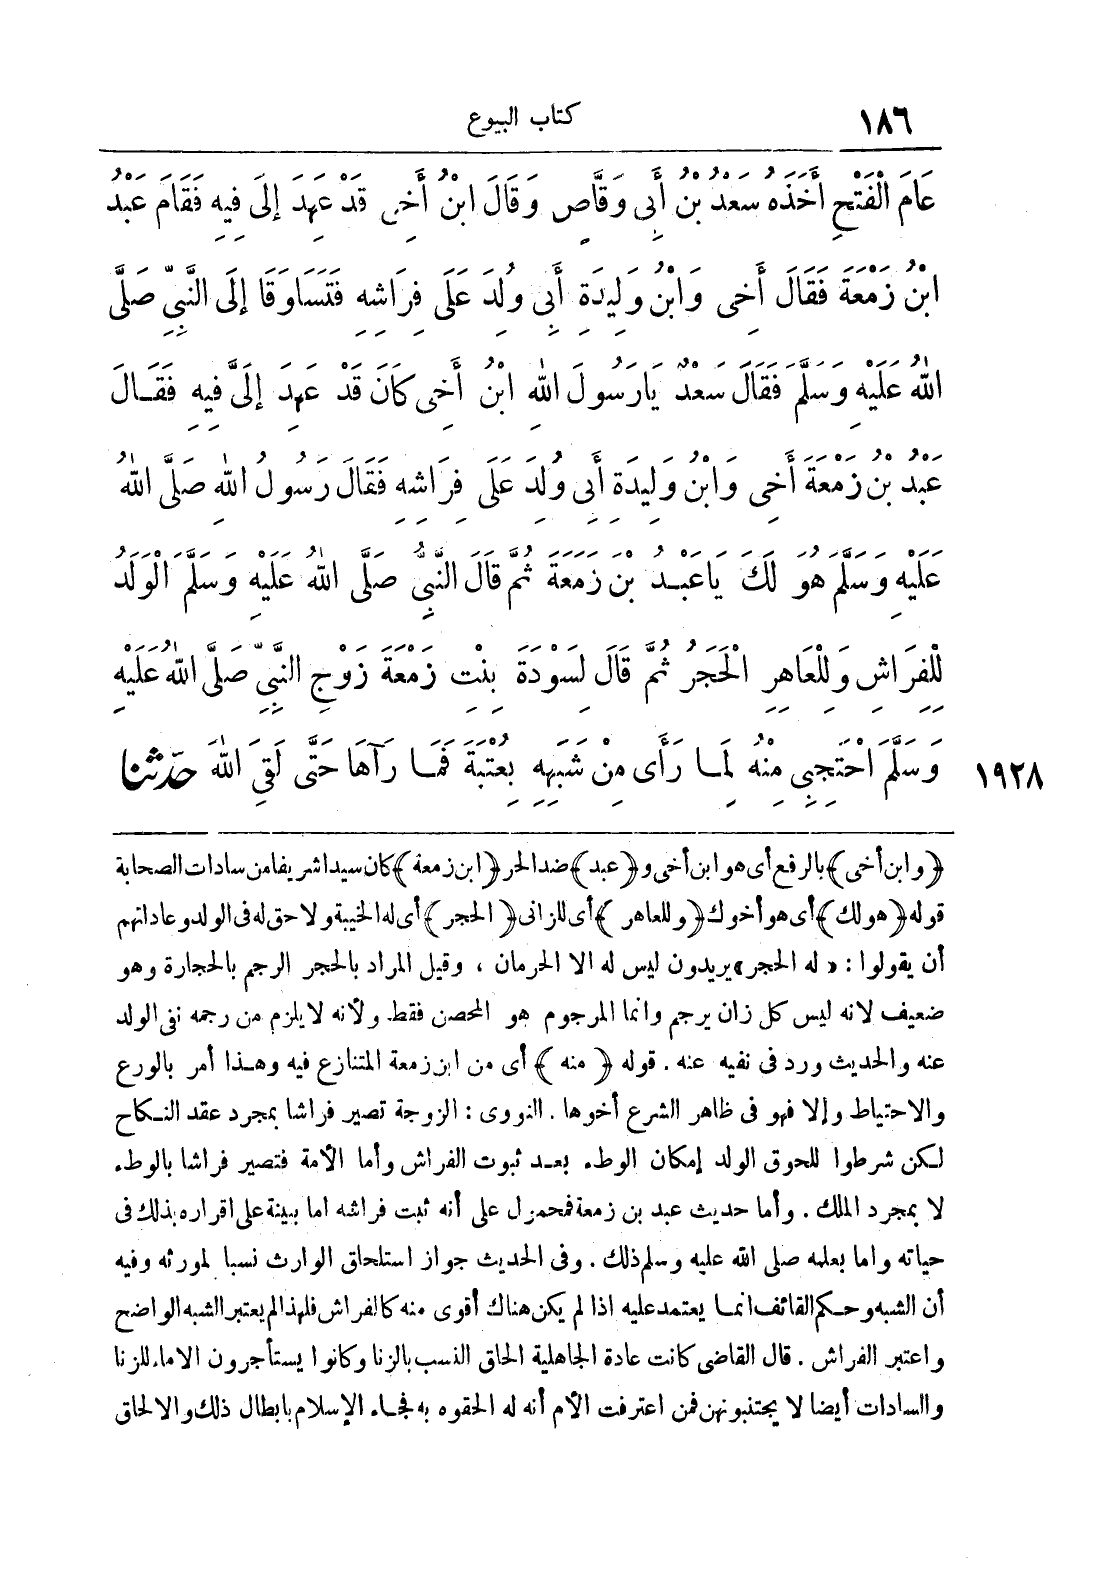 ١٨٦ كتاب البيوع
عَامَ الْفَتْحِ أَخَذَهُ سَعْدُ بْنُ أَبِى وَقَّاصٍ وَقَالَ ابْنُ أَخِى قَدْ عَهِدَ إِلَىَّ فِيهِ فَقَامَ عَبْدُ
ابْنُ زَمْعَةَ فَقَالَ أَخِى وَابْنُ وَلِيدَةِ أَبِى وُلِدَ عَلَى فِرَاشِهِ فَتَسَاوَقَا إِلَى النَّبِىِّ صَلَّى
اللهُ عَلَيْهِ وَسَلَّمَ فَقَالَ سَعْدٌ يَارَسُولَ اللهِ ابْنُ أَخِى كَانَ قَدْ عَهِدَ إِلَىَّ فِيهِ فَقَالَ
عَبْدُ بْنُ زَمْعَةَ أَخِى وَابْنُ وَلِيدَةِ أَبِى وُلِدَ عَلَى فِرَاشِهِ فَقَالَ رَسُولُ اللهِ صَلَّى اللهُ
عَلَيْهِ وَسَلَّمَ هُوَ لَكَ يَاعَبْدُ بْنَ زَمَعَةَ ثُمَّ قَالَ النَّبِىُّ صَلَّى اللهُ عَلَيْهِ وَسَلَّمَ الْوَلَدُ
لِلْفِرَاشِ وَلِلْعَاهِرِ الْحَجَرُ ثُمَّ قَالَ لِسَوْدَةَ بِنْتِ زَمْعَةَ زَوْجِ النَّبِىِّ صَلَّى اللهُ عَلَيْهِ
وَسَلَّمَ احْتَجِبِى مِنْهُ لِمَا رَأَى مِنْ شَبَهِهِ بِعُتْبَةَ فَمَا رَآهَا حَتَّى لَقِىَ اللهَ حدّثنا ١٩٢٨
﴿وابن أخى﴾ بالرفع أى هو ابن أخى و﴿عبد﴾ ضد الحر ﴿ابن زمعة﴾ كان سيدا شريفا من سادات الصحابة
قوله ﴿هولك﴾ أى هو أخوك ﴿وللعاهر﴾ أى للزانى ﴿الحجر﴾ أى له الخيبة ولا حق له فى الولد وعادتهم
أن يقولوا : «له الحجر» يريدون ليس له الا الحرمان ، وقيل المراد بالحجر الرجم بالحجارة وهو
ضعيف لانه ليس كل زان يرجم وانما المرجوم هو المحصن فقط ولأنه لا يلزم من رجمه نفى الولد
عنه والحديث ورد فى نفيه عنه . قوله ﴿ منه ﴾ أى من ابن زمعة المتنازع فيه وهذا أمر بالورع
والاحتياط وإلا فهو فى ظاهر الشرع أخوها . النووى : الزوجة تصير فراشا بمجرد عقد النكاح
لكن شرطوا للحوق الولد إمكان الوطء بعد ثبوت الفراش وأما الأمة فتصير فراشا بالوطء
لا بمجرد الملك . وأما حديث عبد بن زمعة فمحمول على أنه ثبت فراشه اما ببينة على اقراره بذلك فى
حياته واما بعلمه صلى الله عليه وسلم ذلك . وفى الحديث جواز استلحاق الوارث نسبا لمورثه وفيه
أن الشبه وحكم القائف انما يعتمد عليه اذا لم يكن هناك أقوى منه كالفراش فلهذا لم يعتبر الشبه الواضح
واعتبر الفراش . قال القاضى كانت عادة الجاهلية الحاق النسب بالزنا وكانوا يستأجرون الاماء للزنا
والسادات أيضا لا يجتنبونهن فمن اعترفت الأم أنه له الحقوه به فجاء الإسلام بابطال ذلك والالحاق